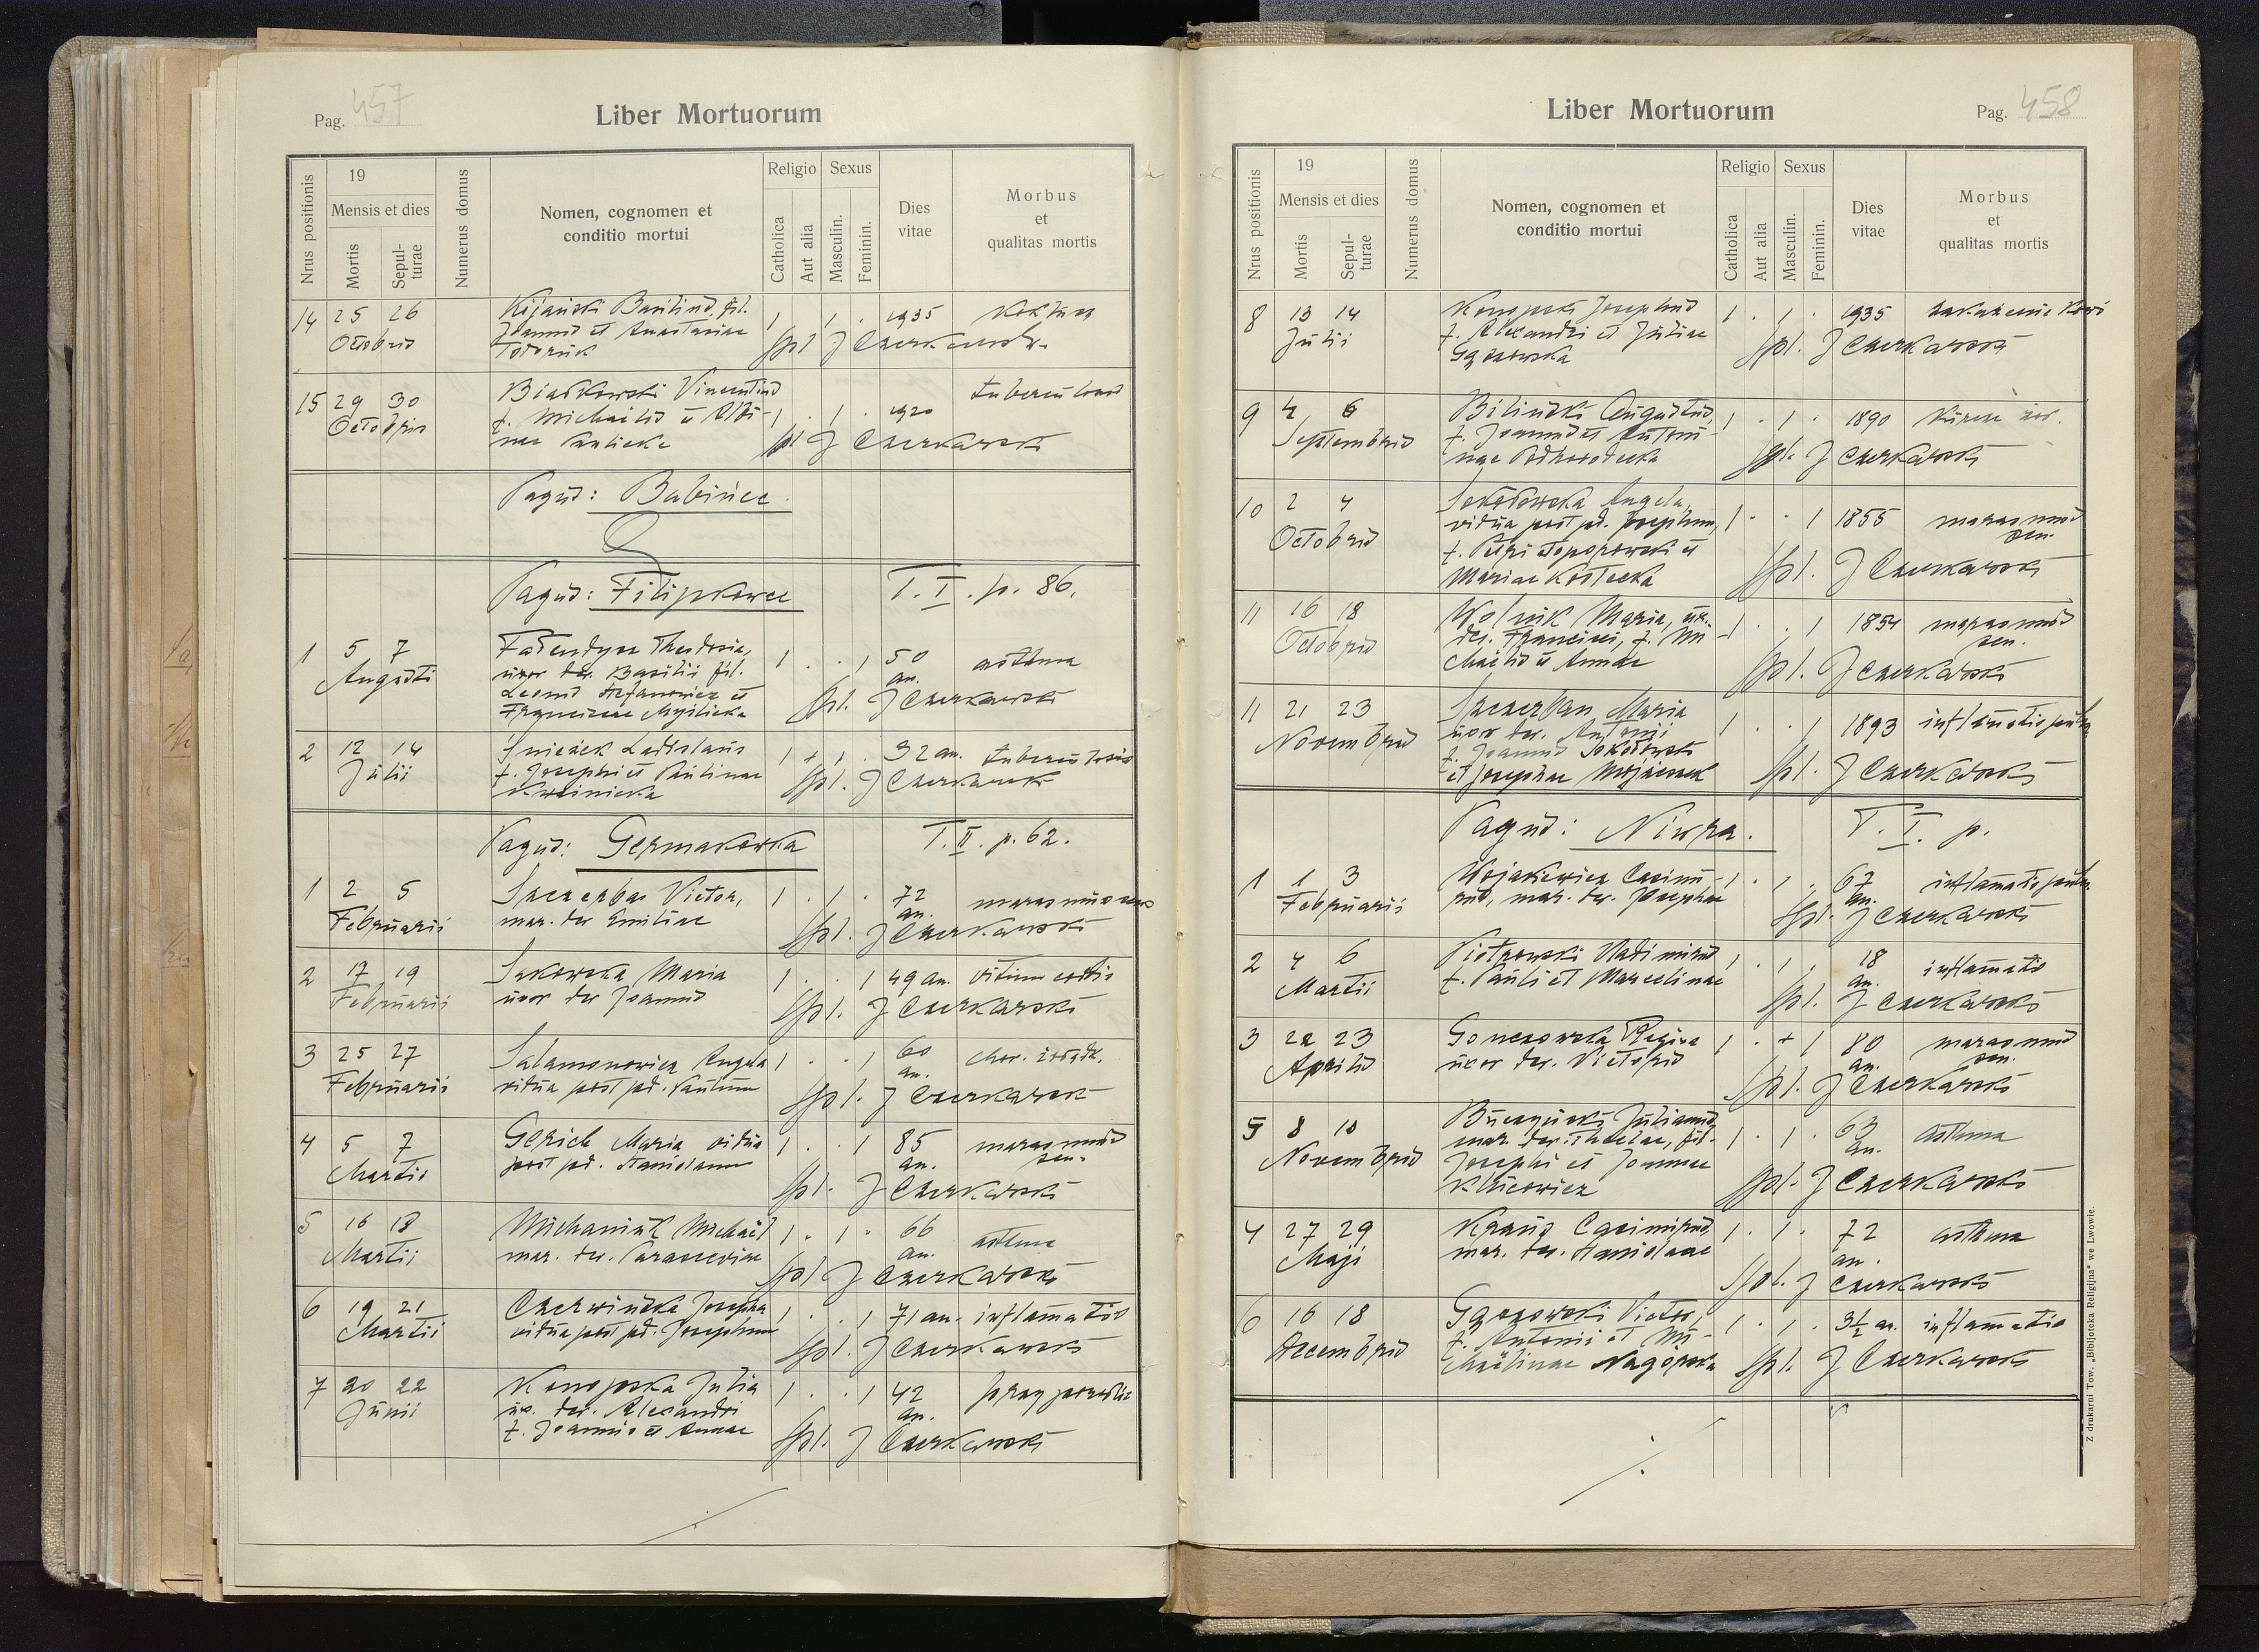 Pag. 457
Liber Mortuorum
Nrus positionis
19
Mensis et dies
Mortis
Sepul-
turae
Numerus domus
Nomen, cognomen et
conditio mortui
Religio
Catholica
Aut alia
Sexus
Masculin.
Feminin.
Dies
vitae
Morbus
et
qualitas mortis
14 25 26 Kijański Basilius, fil. 1 1 1935
Octobris Joannis et Anastasiae
15 29 30 Białkowski Vincentius 1 1 1920
Octobris f. Michaelis et
J Czerkawski
Pagus: Babińce
Pagus: Filipkowce T. I. p. 86.
1 5 7 Theodosia, 1 1 50 asthma
Augusti uxor der. Basilii fil. an.
Leonis Stefanowicz et Spl. J Czerkawski
Franciscae
2 12 14 Ladislaus 1 + 1 32 an. tuberculosis
Julii f. Josephi et Paulinae Spl. J Czerkawski
Pagus: Germakówka T. II. p. 62.
1 2 5 Szczerba Victor, 1 1 72
Februarii mar. der Emiliae an.
Spl. J Czerkawski
2 17 19 Maria 1 1 49 an. vitium cordis
Februarii uxor der Joannis Spl. J Czerkawski
3 25 27 Salamonowicz Angela 1 1 60 chor. żołądk.
Februarii vidua post pd. Paulum an.
Spl. J Czerkawski
4 5 7 Maria vidua 1 1 85 marasmus
Martii post pd. Stanislaum an. sen.
Spl. J Czerkawski
5 16 18 Michaniuk Michael 1 1 66 asthma
Martii mar. der. Parasceviae an.
Spl J Czerkawski
6 19 21 Czerwińska Josepha 1 1 71 an. inflamatio
Martii vidua post pd. Josephum Spl. J Czerkawski
7 20 22 Konopska Julia 1 1 42
Junii ux. der. Alexandri an.
f. Joannis et Annae Spl. J Czerkawski
Liber Mortuorum
Pag. 458
Nrus positionis
19
Mensis et dies
Mortis
Sepul-
turae
Numerus domus
Nomen, cognomen et
conditio mortui
Religio
Catholica
Aut alia
Sexus
Masculin.
Feminin.
Dies
vitae
Morbus
et
qualitas mortis
8 13 14 Konopski Josephus 1 1 1935 zakażenie krwi
Julii f. Alexandri et Juliae Spl. J Czerkawski
Gązowska
9 4 6 Biliński Augustus, 1 1 1890
Septembris f. Joannis et Antoni-
nae Podhorodecka Spl. J Czerkawski
10 2 4 Sokołowska Angela, 1 1 1855 marasmus
Octobris vidua post pd. Josephum, sen.
f. Petri Toporowski et Spl. J Czerkawski
Mariae Kostecka
11 16 18 Wolnik Maria, ux. 1 1 1854 marasmus
Octobris der. Francisci, f. Mi- sen.
chaelis et Annae Spl. J Czerkawski
11 21 23 Szczerban Maria 1 1 1893 inflamatio pulm.
Novembris uxor der. Antonii
f. Joannis Sokołowski
et Josephae Spl. J Czerkawski
Pagus: Niwra. T. I. p.
1 1 3 Wojakiewicz Casimi- 1 1 67 inflamatio pulm.
Februarii rus, mar. der. Josephae an.
Spl. J Czerkawski
2 4 6 Piotrowski Vladimirus 1 1 18 inflamatio
Martii f. Pauli et Marcelinae an.
Spl. J Czerkawski
3 22 23 Regina 1 + 1 80 marasmus
Aprilis uxor der. Victoris an. sen.
Spl. J Czerkawski
5 8 10 Buczyński Julianus 1 1 63 asthma
Novembris mar. der. Theclae, fil. an.
Josephi et Joannae
Spl. J Czerkawski
4 27 29 Kraus Casimirus, 1 1 72 asthma
Maji mar. der. Stanislaae an.
Spl. J Czerkawski
6 16 18 Gązowski Victor, 1 1 3½ an. inflamatio
Decembris f. Antonii et Mi-
chaelinae Nagórska Spl. J Czerkawski
Z drukarni Tow. „Bibljoteka Religijna" we Lwowie.